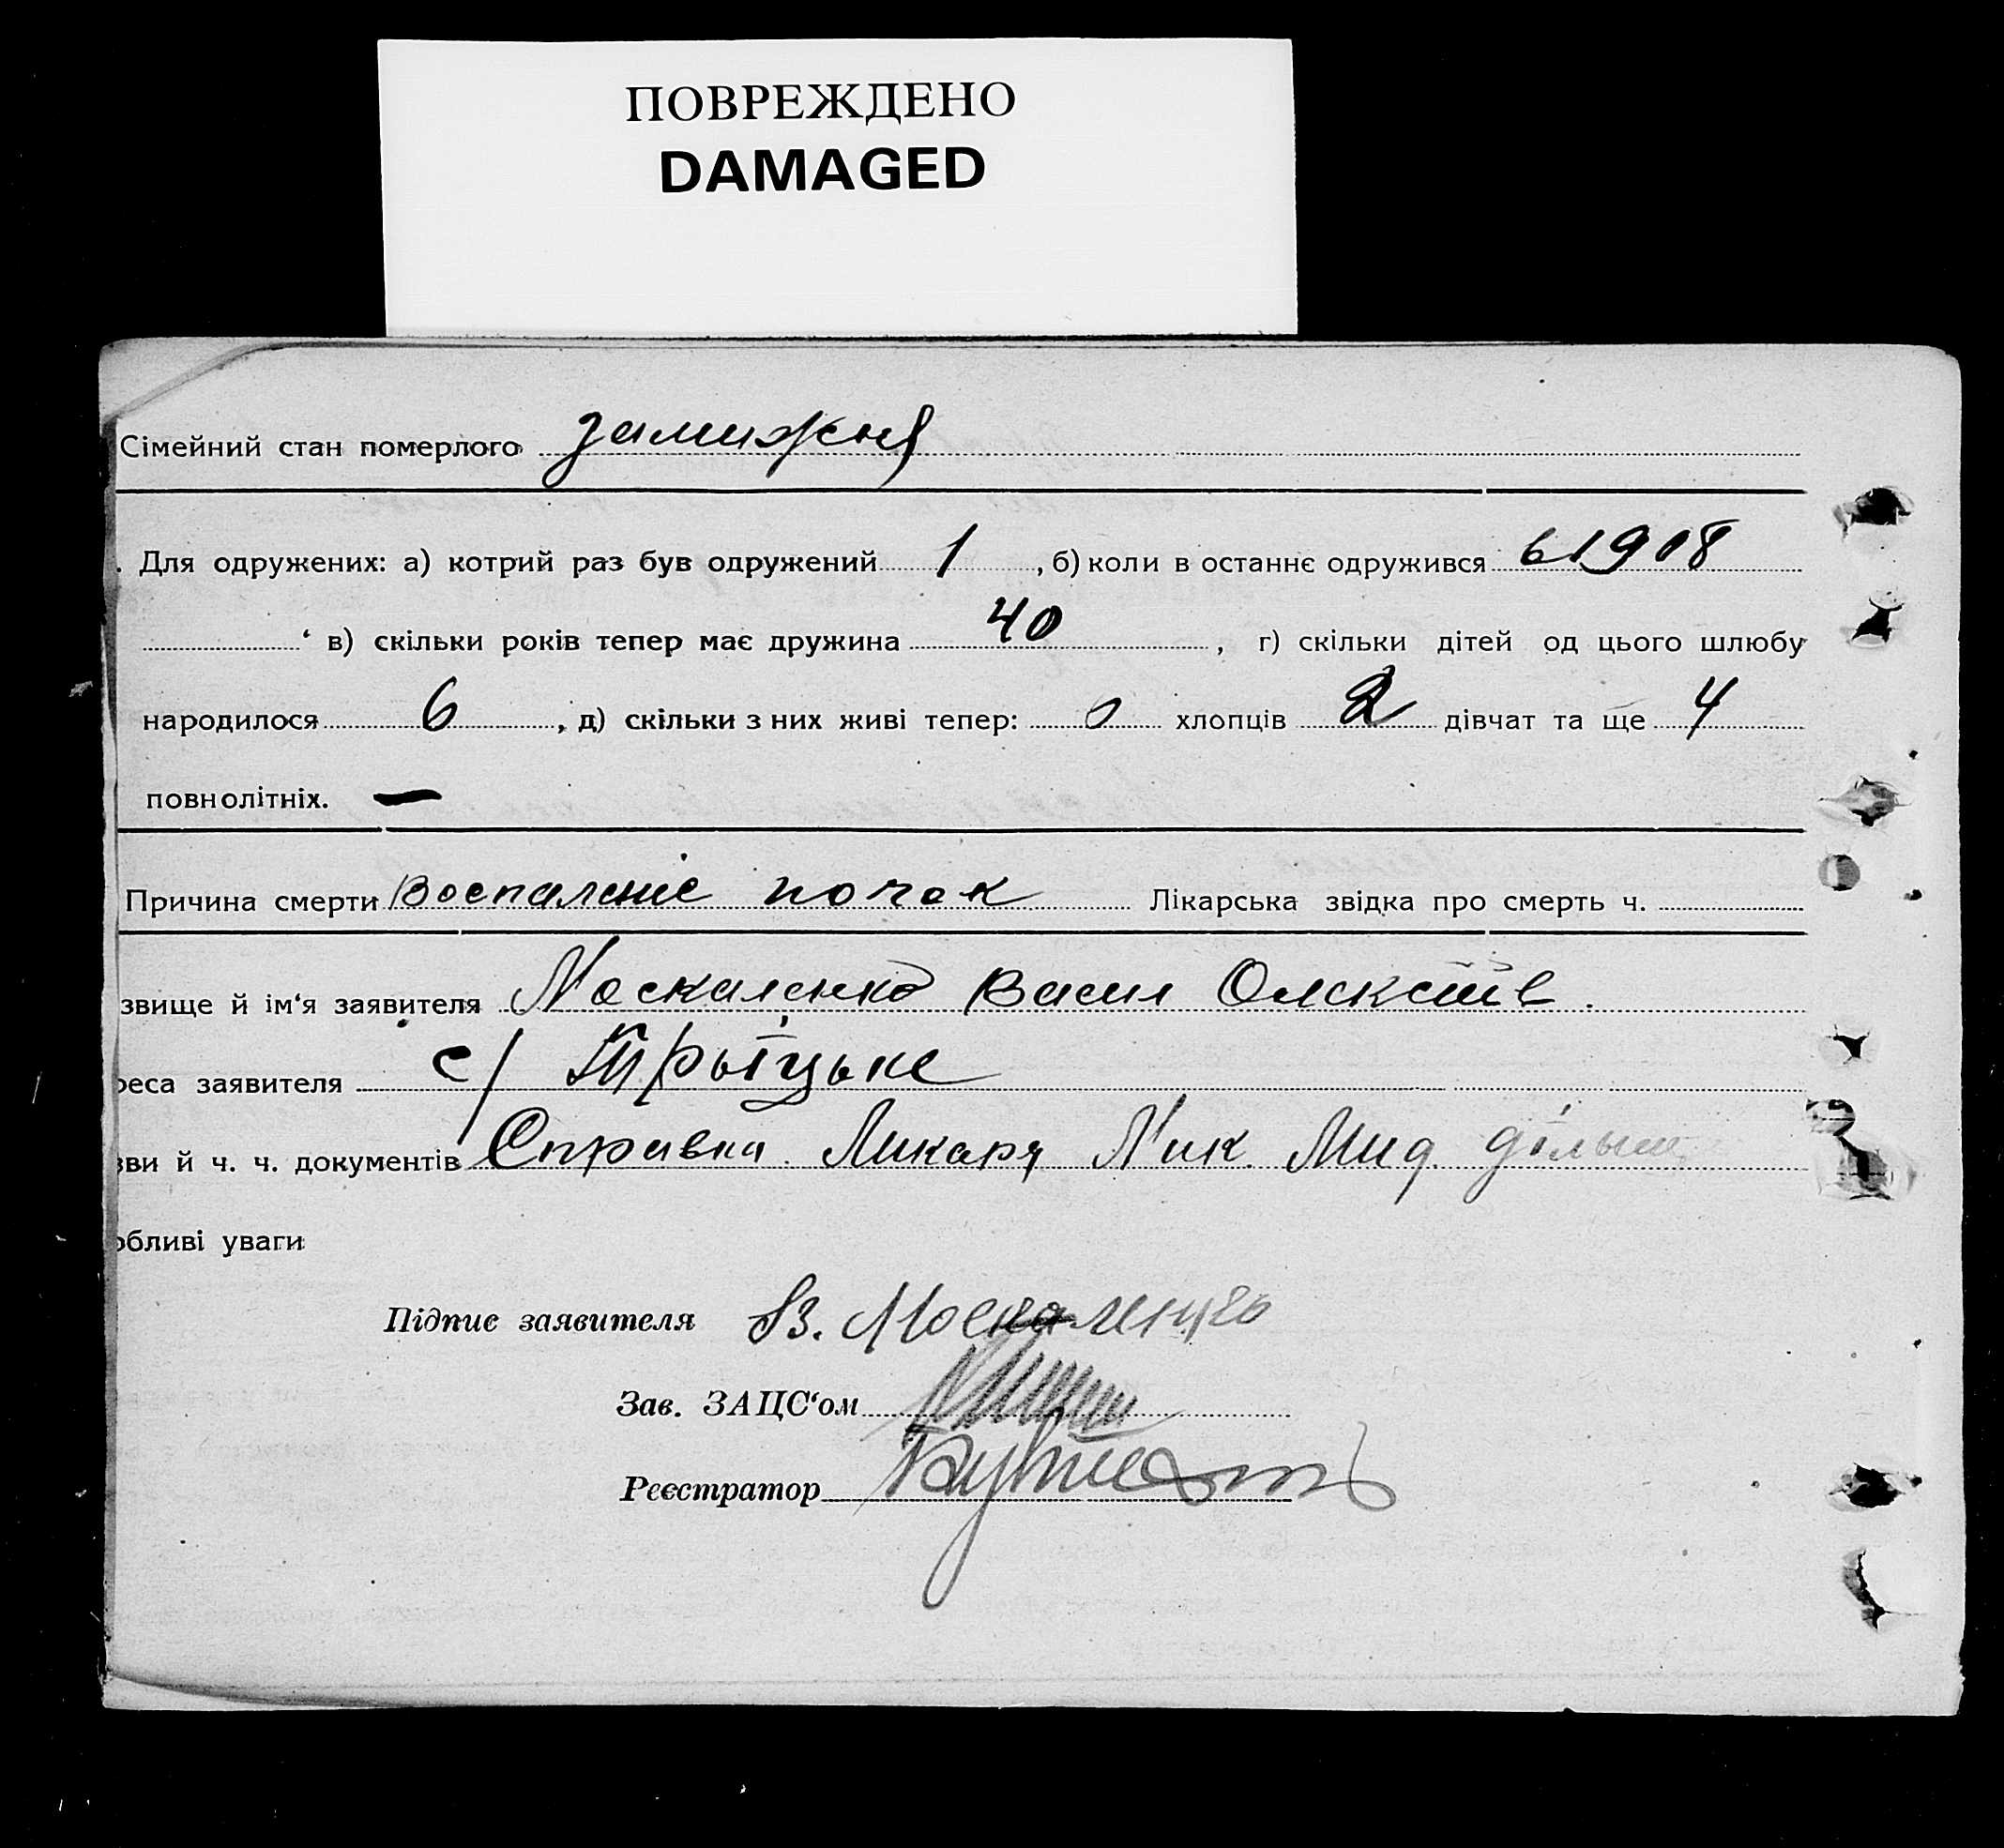 ПОВРЕЖДЕНО
DAMAGED
Сімейний стан померлого замижня
. Для одружених: а) котрий раз був одружений 1 , б) коли в останнє одружився в 1908
‘ в) скільки років тепер має дружина 40 , г) скільки дітей од цього шлюбу
народилося 6 , д) скільки з них живі тепер: 0 хлопців 2 дівчат та ще 4
повнолітніх. —
Причина смерти Воспаление почек Лікарська звідка про смерть ч.
звище й ім‘я заявителя Москаленко Васил Олексіїв.
реса заявителя с/ Трыїцьке
зви й ч. ч. документів Справка Ликаря Мик. Мид. дільн
обливі уваги
Підпис заявителя В. Москаленко
Зав. ЗАЦС‘ом
Реєстратор